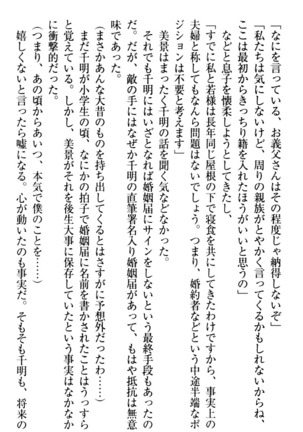 「なにを言っている、お義父さんはその程度じゃ納得しないぞ」
「私たちは気にしないけど、周りの親族がとやかく言ってくるかもしれないからね。
ここは最初からきっちり籍を入れたほうがいいと思うの」
などと息子を懐柔しようとしてきたし、
「すでに私と若様は長年同じ屋根の下で寝食を共にしてきたわけですから、事実上の
夫婦と称してもなんら問題はないでしょう。つまり、婚約者などという中途半端なポ
ジションは不要と考えます」
美景はまったく千明の話を聞く気などなかった。
それでも千明にはいざとなれば婚姻届にサインをしないという最終手段もあったの
だ。だが、敵の手にはなぜか千明の直筆署名入り婚姻届があって、もはや抵抗は無意
味であった。
（まさかあんな大昔のものを持ち出してくるとはさすがに予想外だったわ……）
まだ千明が小学生の頃、なにかの拍子で婚姻届に名前を書かされたことはうっすら
と覚えている。しかし、美景がそれを後生大事に保存していたという事実はなかなか
に衝撃的だった。
（つまり、あの頃からあいつ、本気で僕のことを……）
嬉しくないと言ったら嘘になる。心が動いたのも事実だ。そもそも千明も、将来の